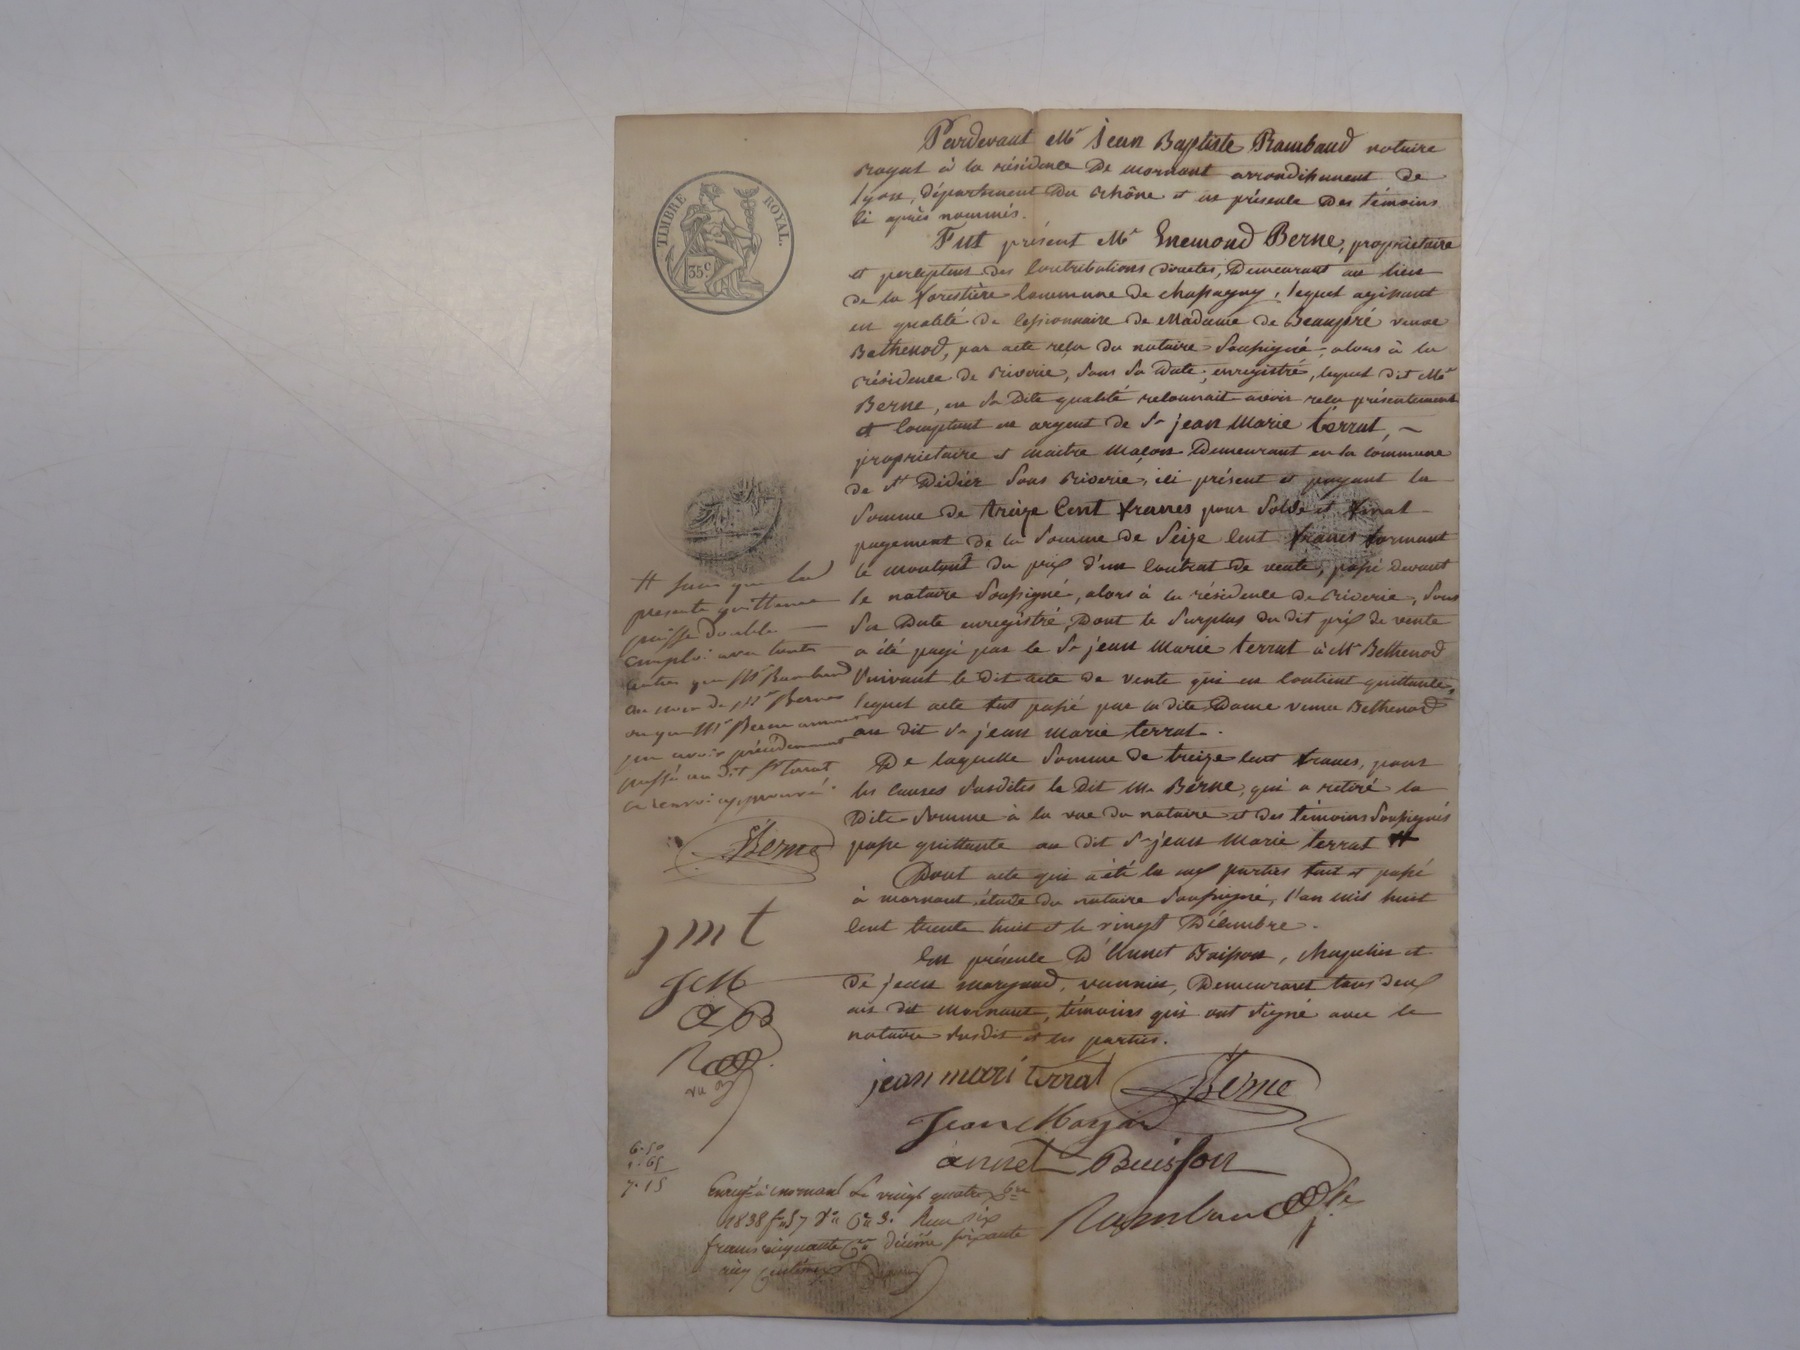 TIMBRE ROYAL.
35 c.
Pardevant Me Jean Baptiste Rambaud notaire
Royal à la résidence De mornant arrondissement de
lyon, département Du rhône et en présence Des témoins
ci après nommés.
Fut présent Mr Enemond Berne, propriétaire
et percepteur des Contributions directes, Demeurant au lieu
de la forestière Commune de chassagny, lequel agissant
en qualité de Cessionnaire de Madame de Beaupré veuve
Bethenod, par acte reçu du notaire Soussigné, alors à la
résidence de riverie, Sous Sa Date, enregistré, lequel dit Mr
Berne, en Sa Dite qualité reconnait avoir reçu présentement
et Comptant en argent de Sr jean Marie terrat,
propriétaire et maitre maçon Demeurant en la Commune
de St Didier Sous riverie, ici présent et payant la
Somme de treize Cent francs pour Solde et final
payement de la Somme de Seize Cent francs formant
le montant du prix d'un Contrat de vente, passé devant
le notaire Soussigné, alors à la résidence de riverie, Sous
Sa Date enregistré, Dont le Surplus du dit prix de vente
a été payé par le Sr jean Marie terrat à Mr Bethenod
Suivant le dit acte de vente qui en Contient quittance,
lequel acte fut passé par la dite Dame veuve Bethenod
au dit Sr jean marie terrat.
De laquelle Somme de treize Cent francs, pour
les Causes Susdites le Dit Mr Berne, qui a retiré la
Dite Somme à la vue du notaire et des témoins Soussignés
passe quittance au dit Sr jean Marie terrat #
Dont acte qui a été lu aux parties fait et passé
à mornant, étude du notaire Soussigné, l'an mil huit
Cent trente huit et le vingt Décembre.
En présence D'Annet Buisson, et
de jean marjand, vannier, Demeurant tous deux
au dit mornant, témoins qui ont Signé avec le
notaire Susdit et les parties.
# Sans que la
présente quittance
puisse Double
emploi avec toute
autre que Mr Rambaud
au nom de Mr Berne
ou que Mr Berne
avoir précédemment
passé au dit Sr terrat
ce renvoi approuvé.
Berne
jmt
JM
AB
jean mari terrat
Berne
Jean
annet Buisson
Rambaud
6.50
7.15
Enregé à mornant Le vingt quatre Xbre
1838 fo 57 Vo Ce 3. Reçu Six
francs cinquante Ce décime soixante
cinq centimes